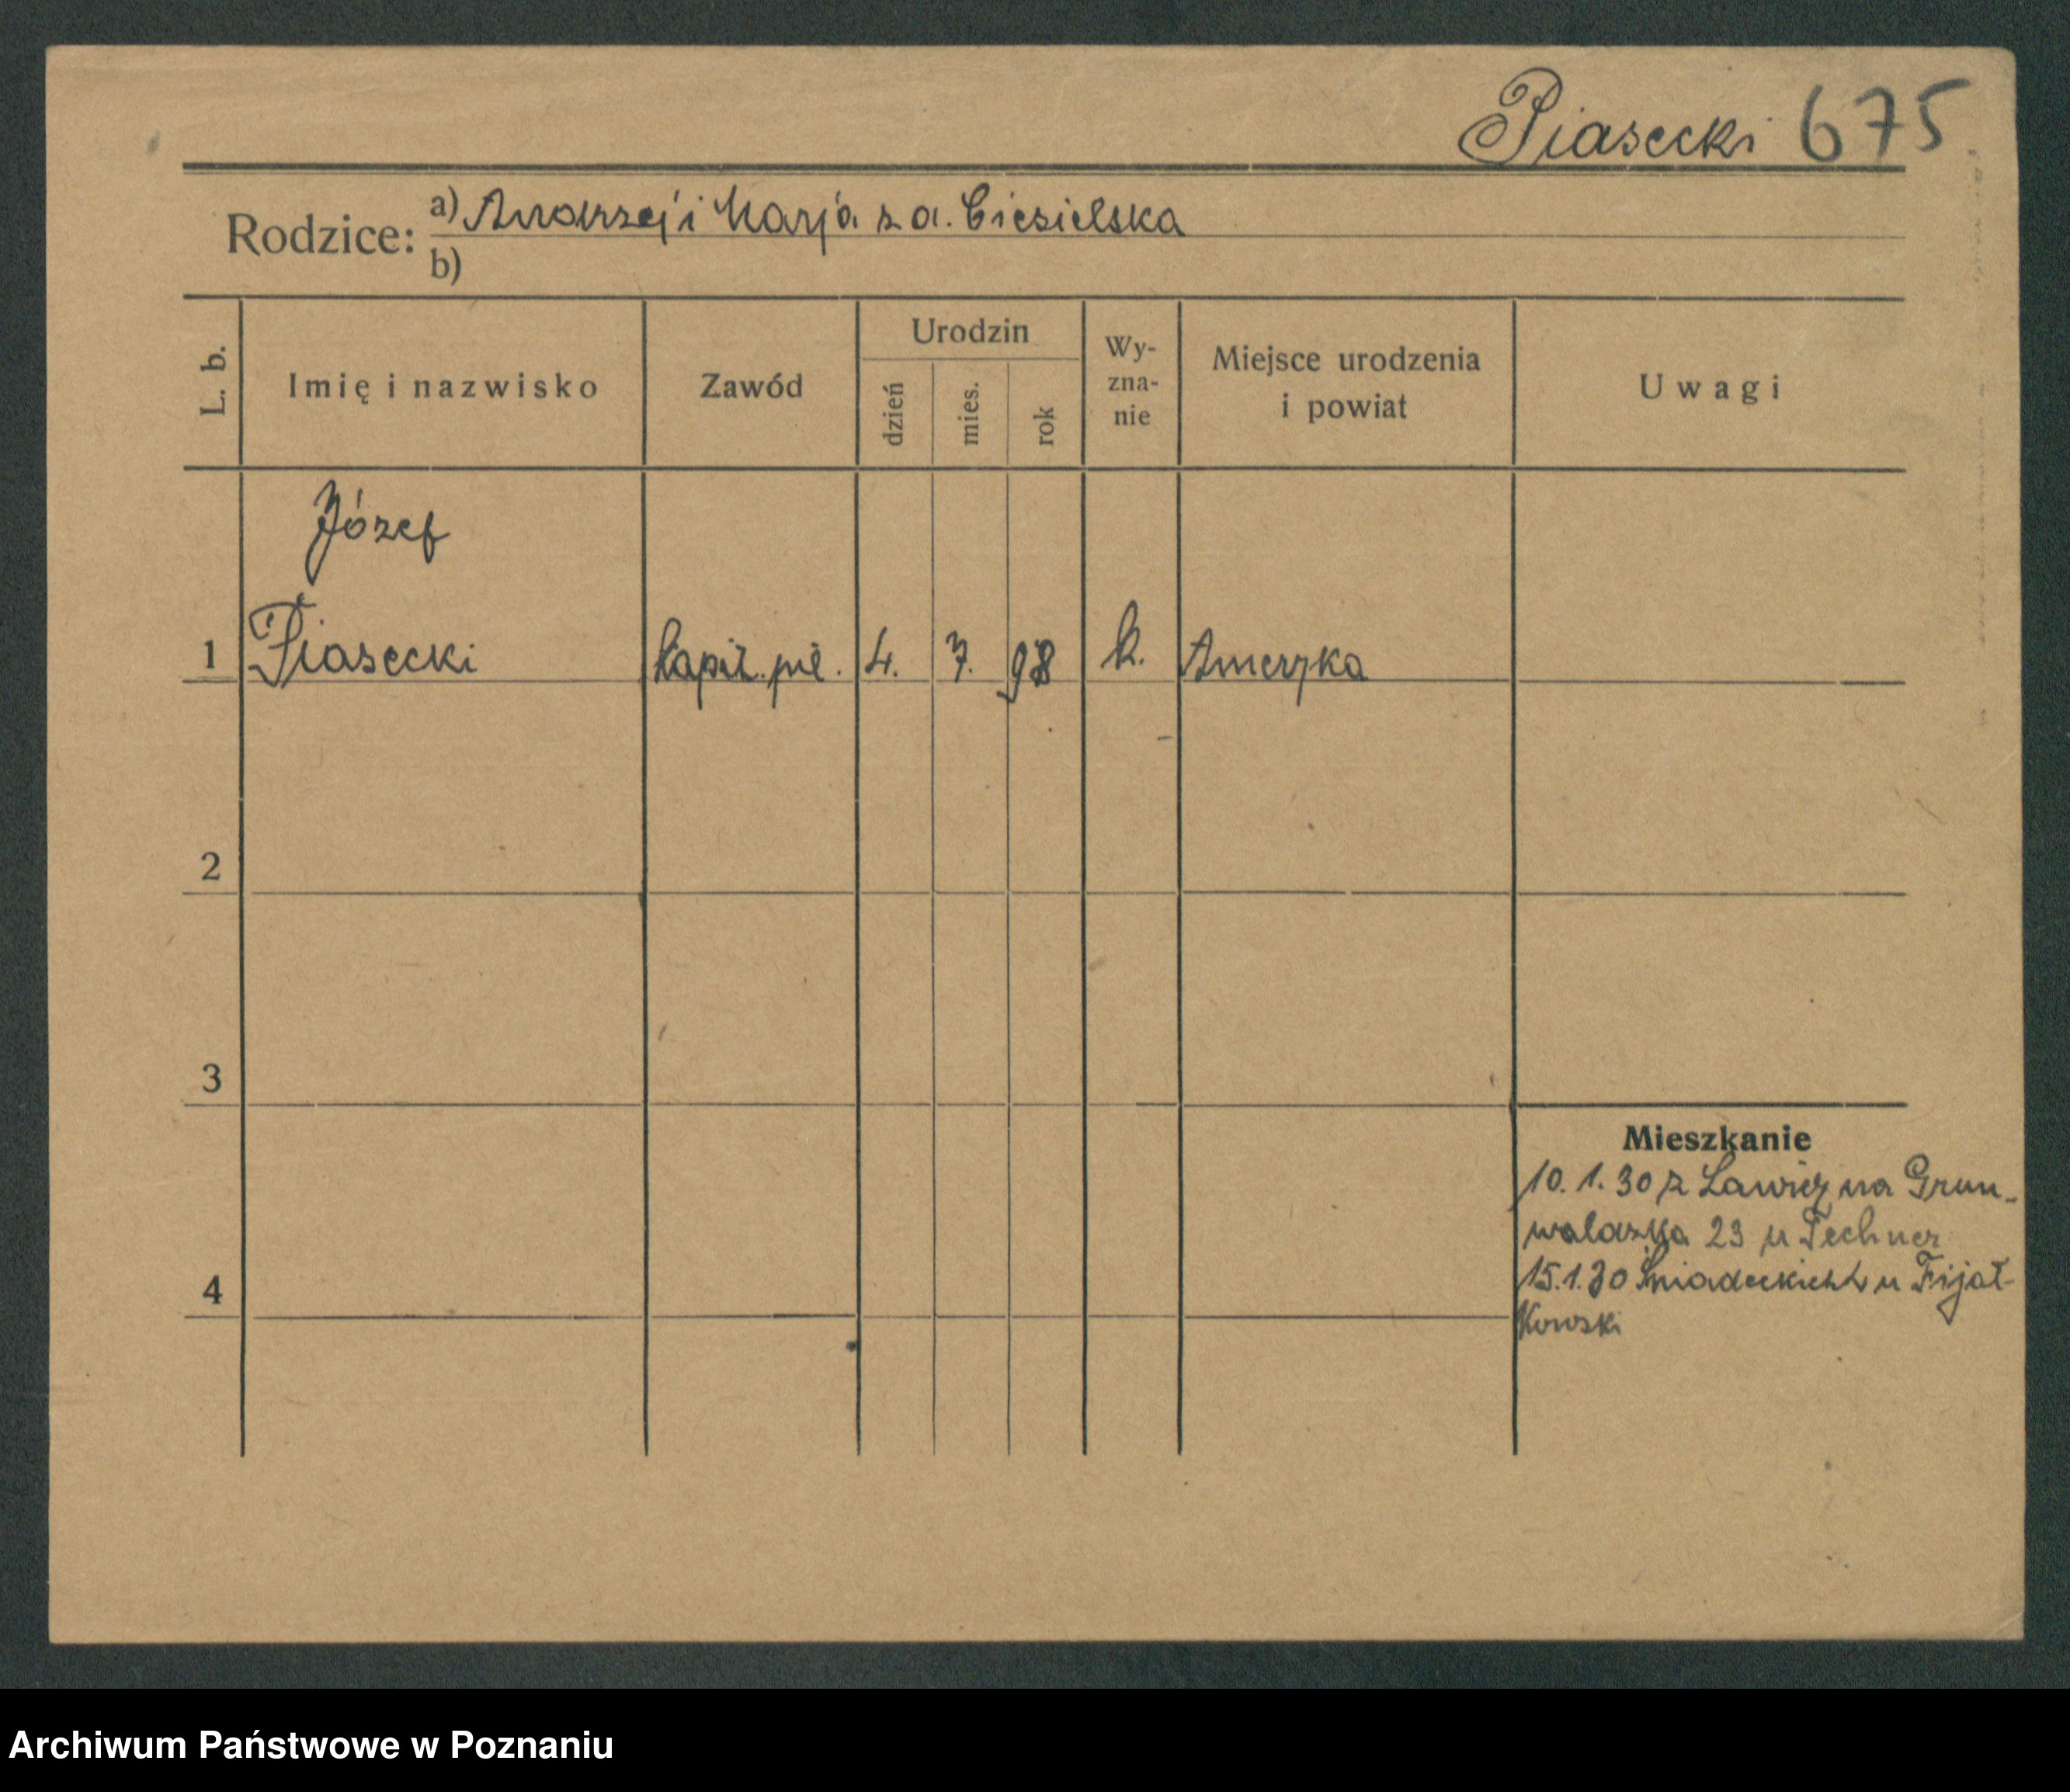 Piasecki 675
Rodzice: a) Andrzej i Marja z d. Ciesielska
b)
L. b.
Imię i nazwisko
Zawód
Urodzin
dzień
mies.
rok
Wy-
zna-
nie
Miejsce urodzenia
i powiat
Uwagi
Józef
1 Piasecki kapit. pil. 4. 7. 98 k. Ameryka
2
3
4
Mieszkanie
10.1.30 z Ławicy na Grun-
waldzka 23 u Techner
15.1.30 Śniadeckich u Fijał-
kowski
Archiwum Państwowe w Poznaniu